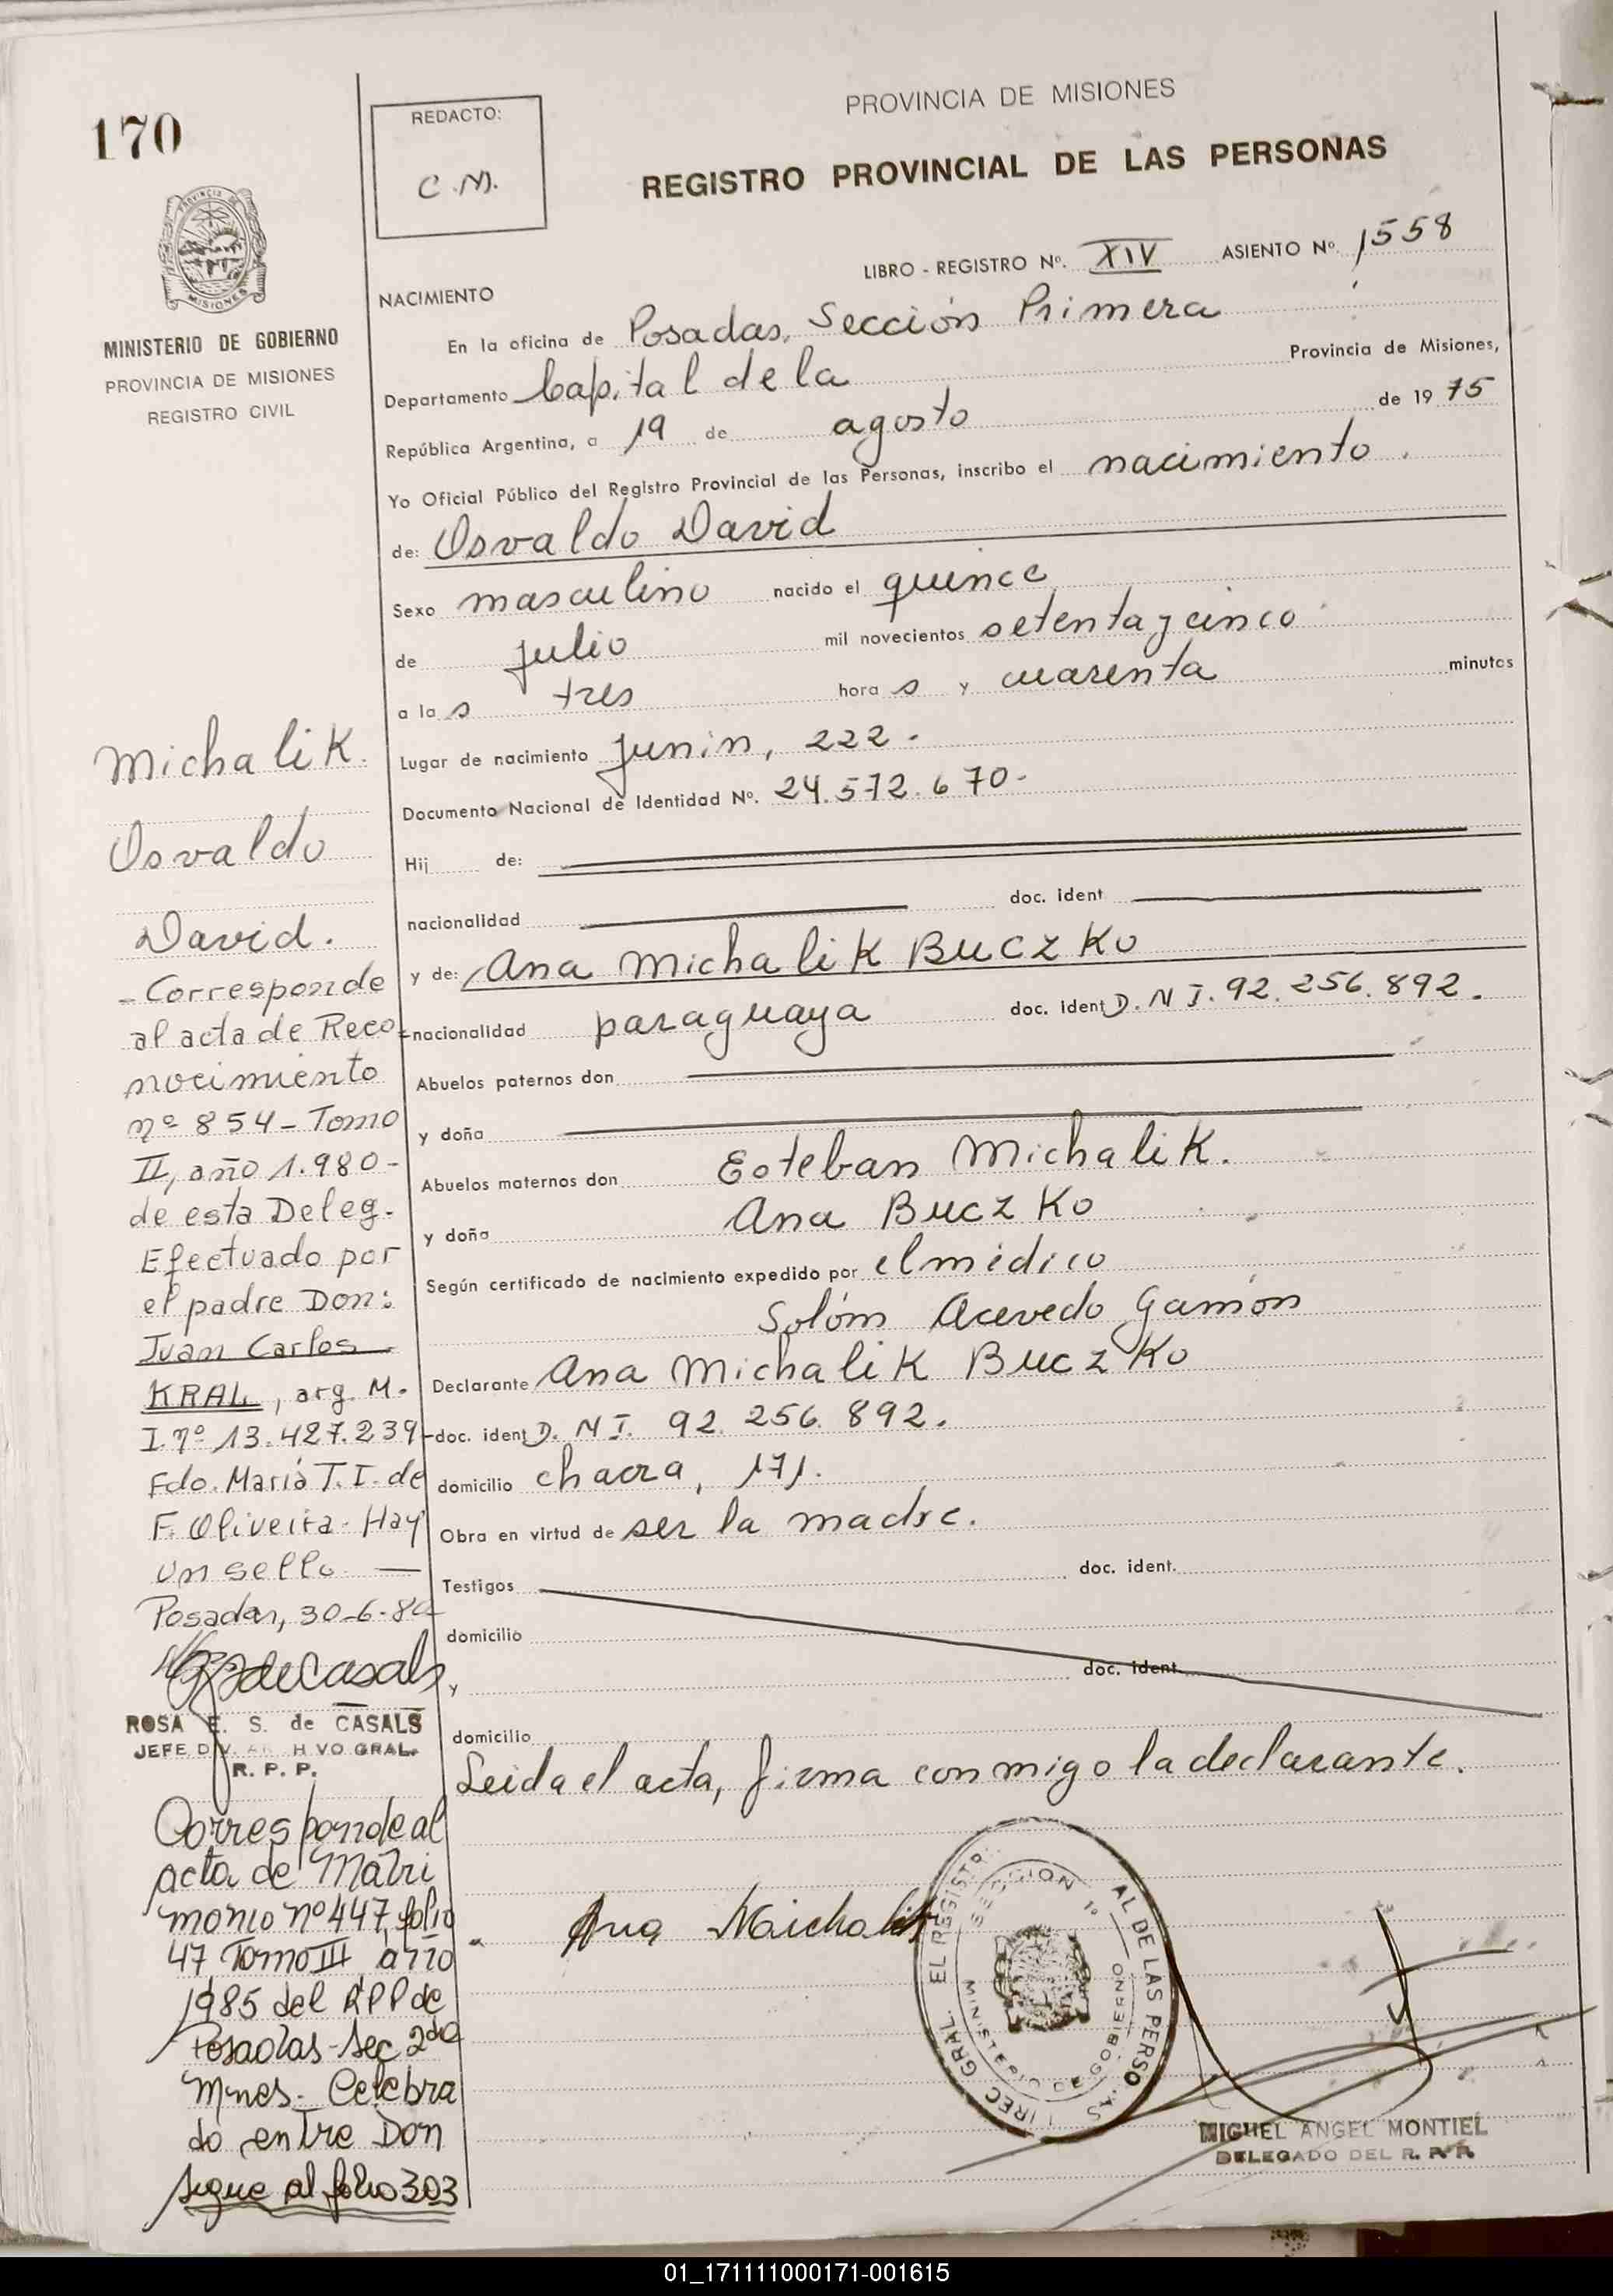 170
REDACTO:
C.M.
PROVINCIA DE MISIONES
REGISTRO PROVINCIAL DE LAS PERSONAS
LIBRO - REGISTRO Nº. XIV ASIENTO Nº. 1558
MINISTERIO DE GOBIERNO
PROVINCIA DE MISIONES
REGISTRO CIVIL
NACIMIENTO
En la oficina de Posadas, Sección Primera
Departamento Capital de la Provincia de Misiones,
República Argentina, a 19 de agosto de 1975
Yo Oficial Público del Registro Provincial de las Personas, inscribo el nacimiento.
de: Osvaldo David
Sexo masculino nacido el quince
de julio mil novecientos setenta y cinco
a la s tres hora s y cuarenta minutos
Lugar de nacimiento Junín, 222.
Documento Nacional de Identidad Nº. 24.572.670-
Hij de:
nacionalidad doc. ident
y de: Ana Michalik Buczko
nacionalidad paraguaya doc. ident D.N.I. 92.256.892.
Abuelos paternos don
y doña
Abuelos maternos don Esteban Michalik.
y doña Ana Buczko
Según certificado de nacimiento expedido por el médico
Solóm Acevedo Gamón
Declarante Ana Michalik Buczko
doc. ident D.N.I. 92.256.892.
domicilio chacra, 171.
Obra en virtud de ser la madre.
Testigos doc. ident.
domicilio
y doc. ident.
domicilio
Leida el acta, firma con migo la declarante.
Michalik.
Osvaldo
David.
- Corresponde
al acta de Reco=
nocimiento
nº 854 - Tomo
II, año 1.980-
de esta Deleg.
Efectuado por
el padre Don:
Juan Carlos
KRAL, arg. M.
I. nº 13.427.239-
Fdo. Maria T. I. de
F. Oliveira. Hay
un sello.
Posadas, 30-6-80
ROSA E. S. de CASALS
JEFE DIV. ARCHIVO GRAL.
R. P. P.
Corresponde al
acta de Matri
monio nº 447, folio
47 Tomo III año
1985 del RPP de
Posadas - Sec 2da
Mnes. - Celebra
do entre Don
Sigue al folio 303
Ana Maichalik
DIREC. GRAL. EL REGISTR AL DE LAS PERSO AS
SECCION 1º
MINISTERIO DE GOBIERNO
MIGUEL ANGEL MONTIEL
DELEGADO DEL R. P. P.
01_171111000171-001615